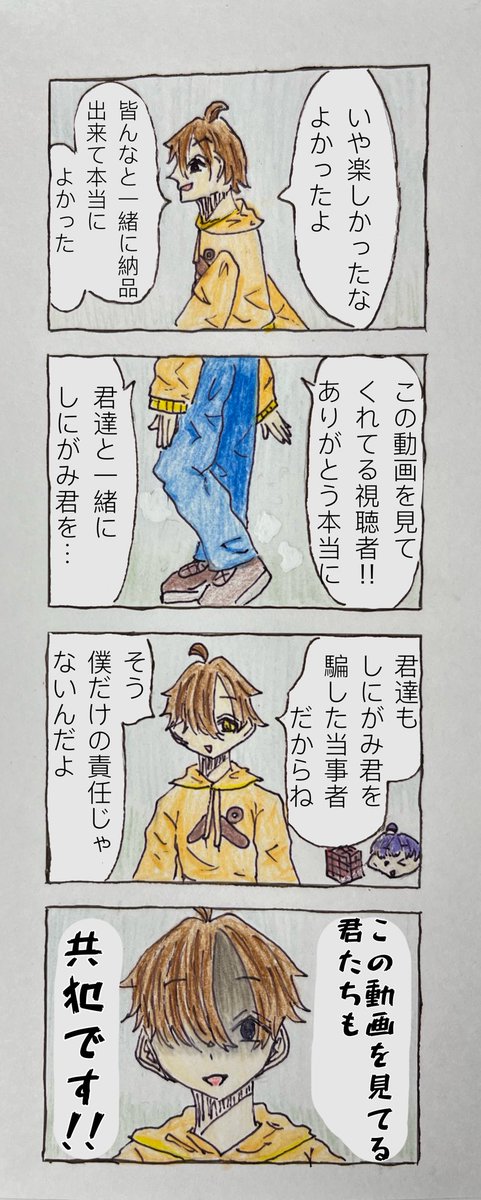 いや楽しかったな
よかったよ
皆んなと一緒に納品
出来て本当に
よかった
この動画を見て
くれてる視聴者!!
ありがとう本当に
君達と一緒に
しにがみ君を…
君達も
しにがみ君を
騙した当事者
だからね
そう
僕だけの責任じゃ
ないんだよ
この動画を見てる
君たちも
共犯です!!